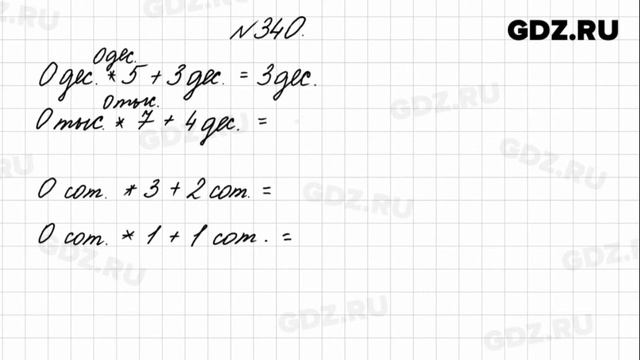 №340.
GDZ.RU
0 дес.
0 дес. * 5 + 3 дес. = 3 дес.
0 тыс.
0 тыс. * 7 + 4 дес. =
0 сот. * 3 + 2 сот. =
0 сот. * 1 + 1 сот. =
GDZ.RU
GDZ.RU
GDZ.RU
GDZ.RU
GDZ.RU
GDZ.RU
GDZ.RU